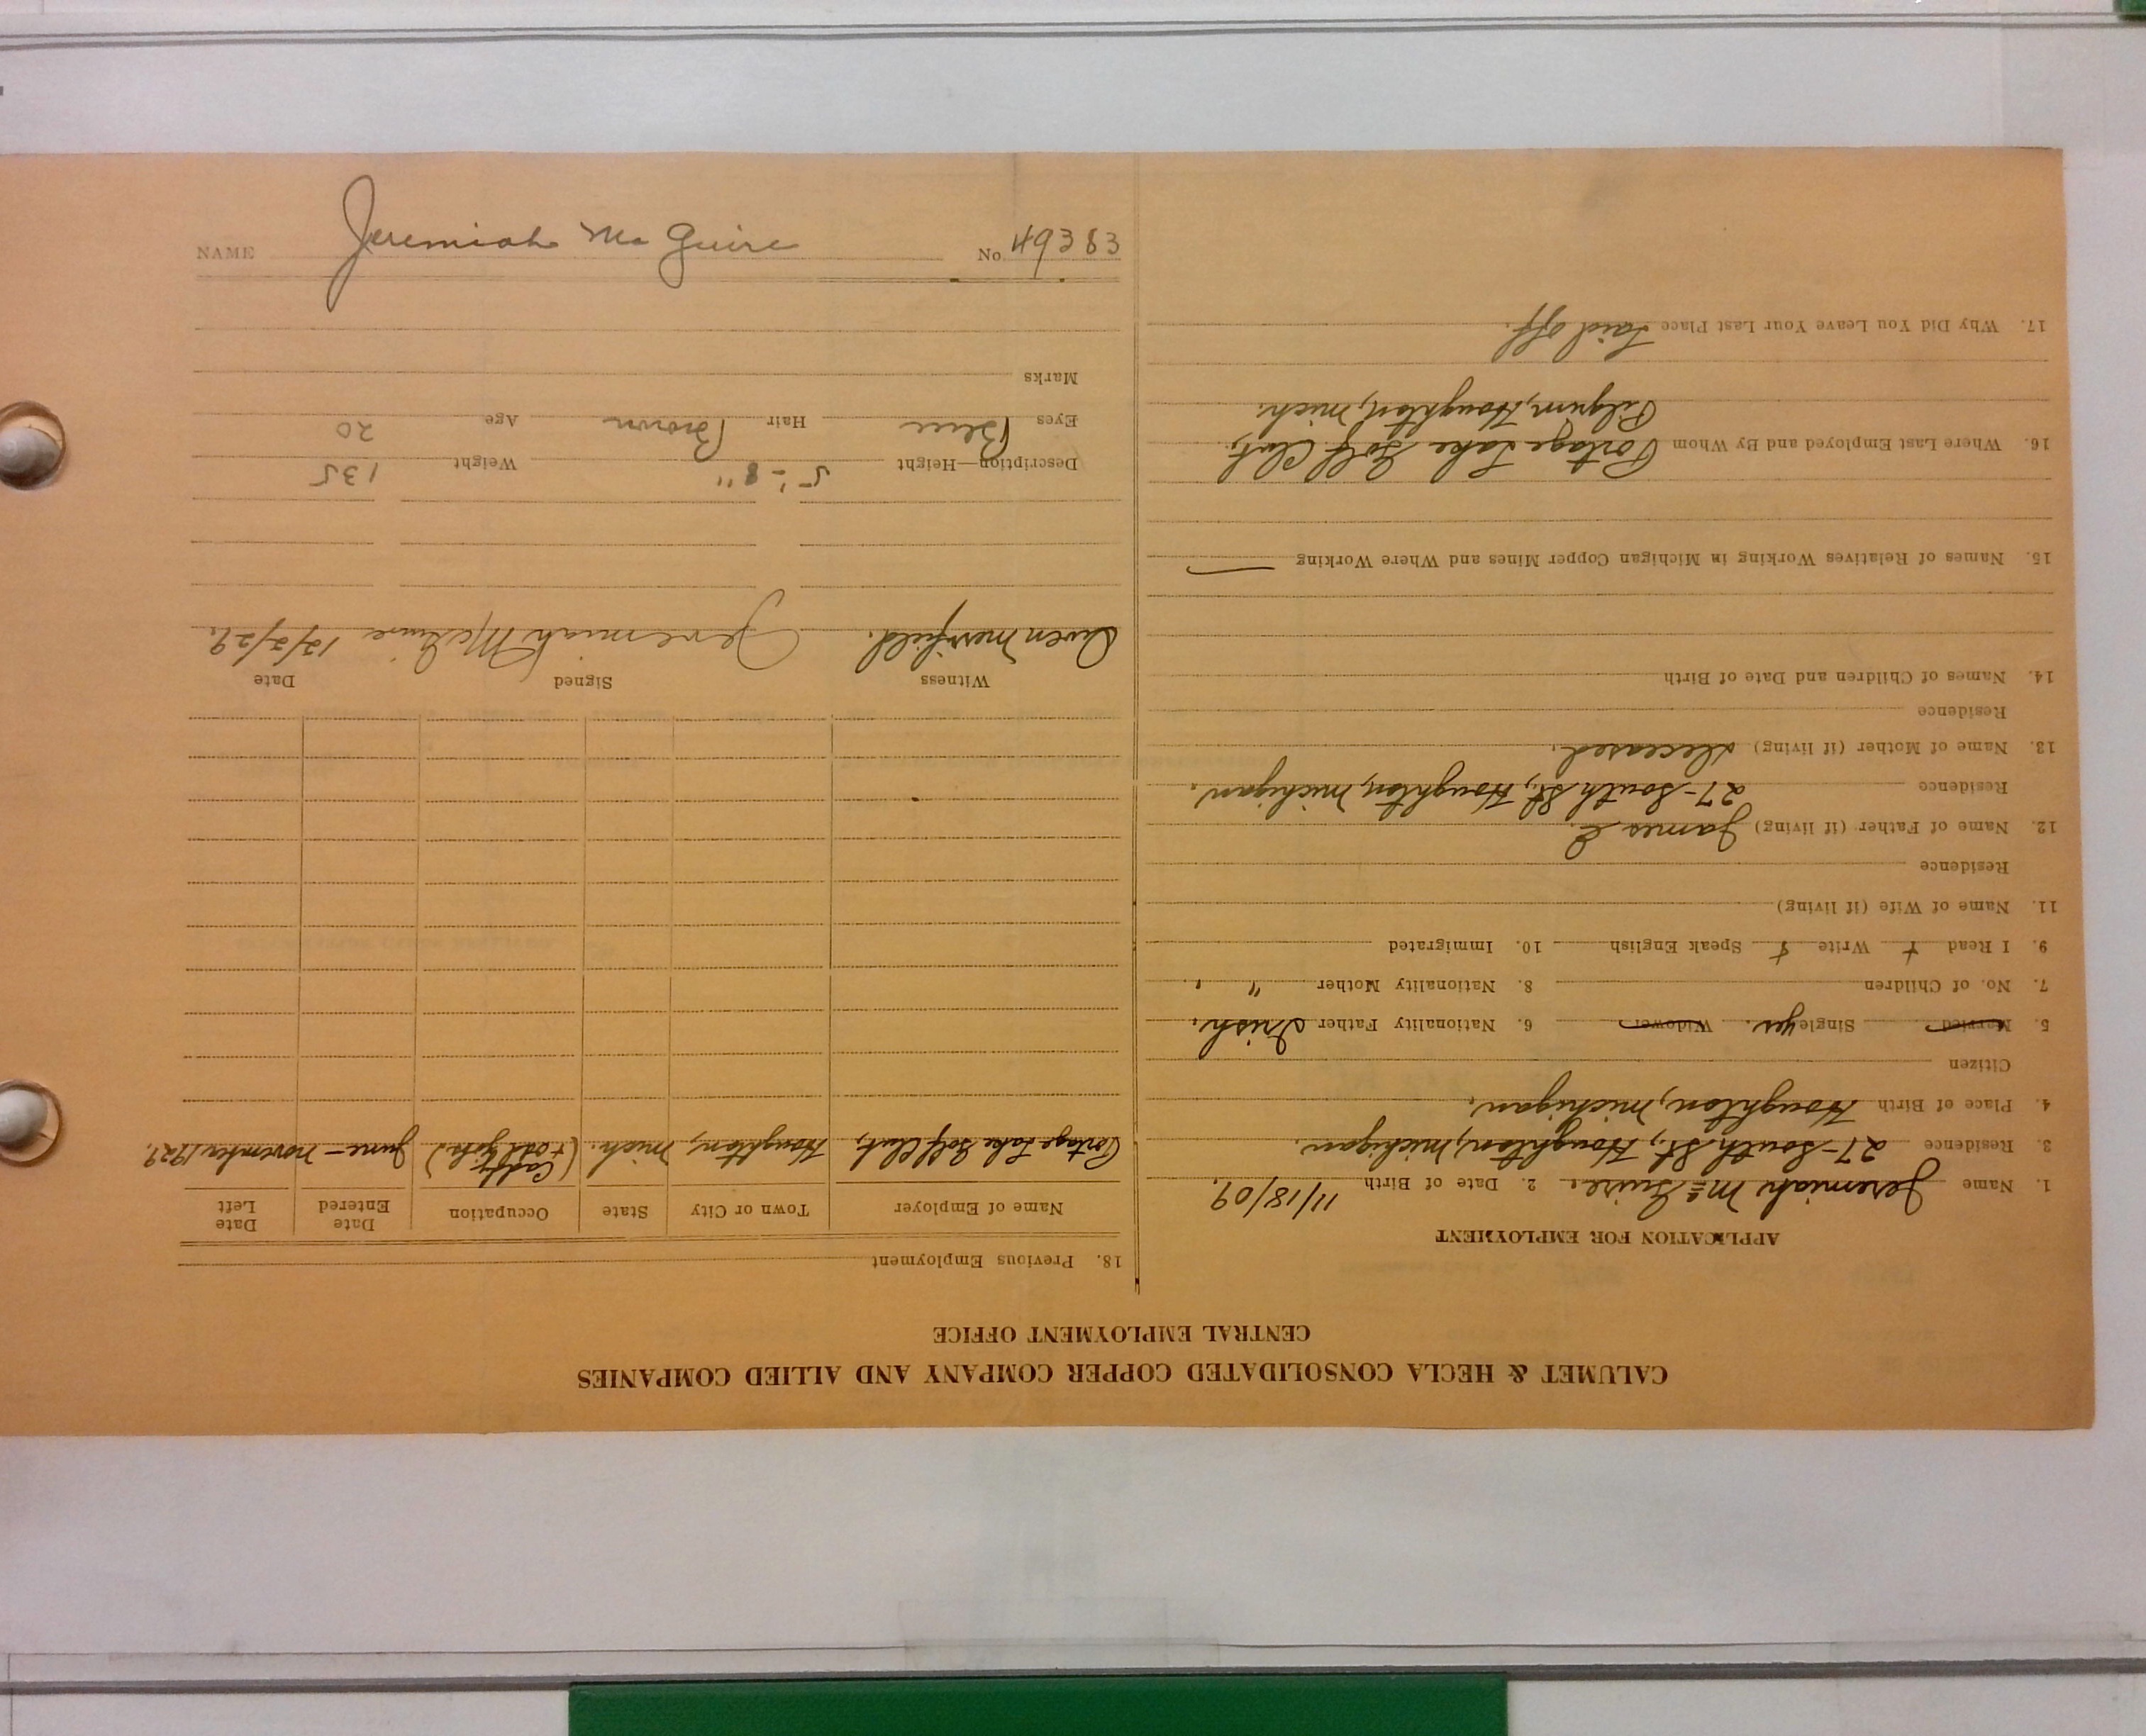 CALUMET & HECLA CONSOLIDATED COPPER COMPANY AND ALLIED COMPANIES
CENTRAL EMPLOYMENT OFFICE
APPLICATION FOR EMPLOYMENT
1. Name Jeremiah McGuire. 2. Date of Birth 11/18/09.
3. Residence 27-South St., Houghton, Michigan.
4. Place of Birth Houghton, Michigan.
Citizen
5. Married Single yes. Widower 6. Nationality Father Irish.
7. No. of Children 8. Nationality Mother " .
9. I Read + Write + Speak English 10. Immigrated
11. Name of Wife (if living)
Residence
12. Name of Father (if living) James E.
Residence 27-South St., Houghton, Michigan.
13. Name of Mother (if living) deceased.
Residence
14. Names of Children and Date of Birth
15. Names of Relatives Working in Michigan Copper Mines and Where Working —
16. Where Last Employed and By Whom Portage Lake Golf Club,
Pilgrum, Houghton, Mich.
17. Why Did You Leave Your Last Place Laid off.
18. Previous Employment
Name of Employer Town or City State Occupation Date Entered Date Left
Portage Lake Golf Club, Houghton, Mich. Caddy (+ odd jobs) June - November 1929.
Witness Signed Date
Owen Merrifield. Jeremiah McGuire 12/3/29.
Description—Height 5'-8" Weight 135
Eyes Blue Hair Brown Age 20
Marks
NAME Jeremiah McGuire No. 49383